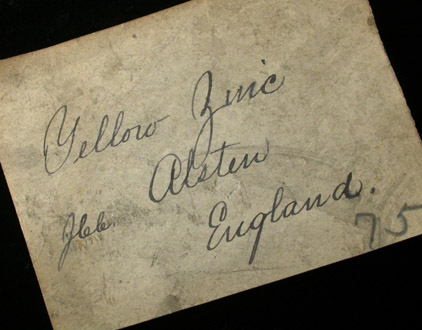 Yellow Zinc
Alsten
England.
75